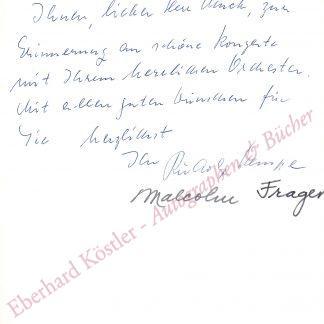 Ihnen, lieber Herr Munch, zur
Erinnerung an schöne Konzerte
mit Ihrem herrlichen Orchester.
Mit allen guten Wünschen für
Sie herzlichst
Ihr Rudolf Kempe
Malcolm Frager
Eberhard Köstler - Autographen & Bücher